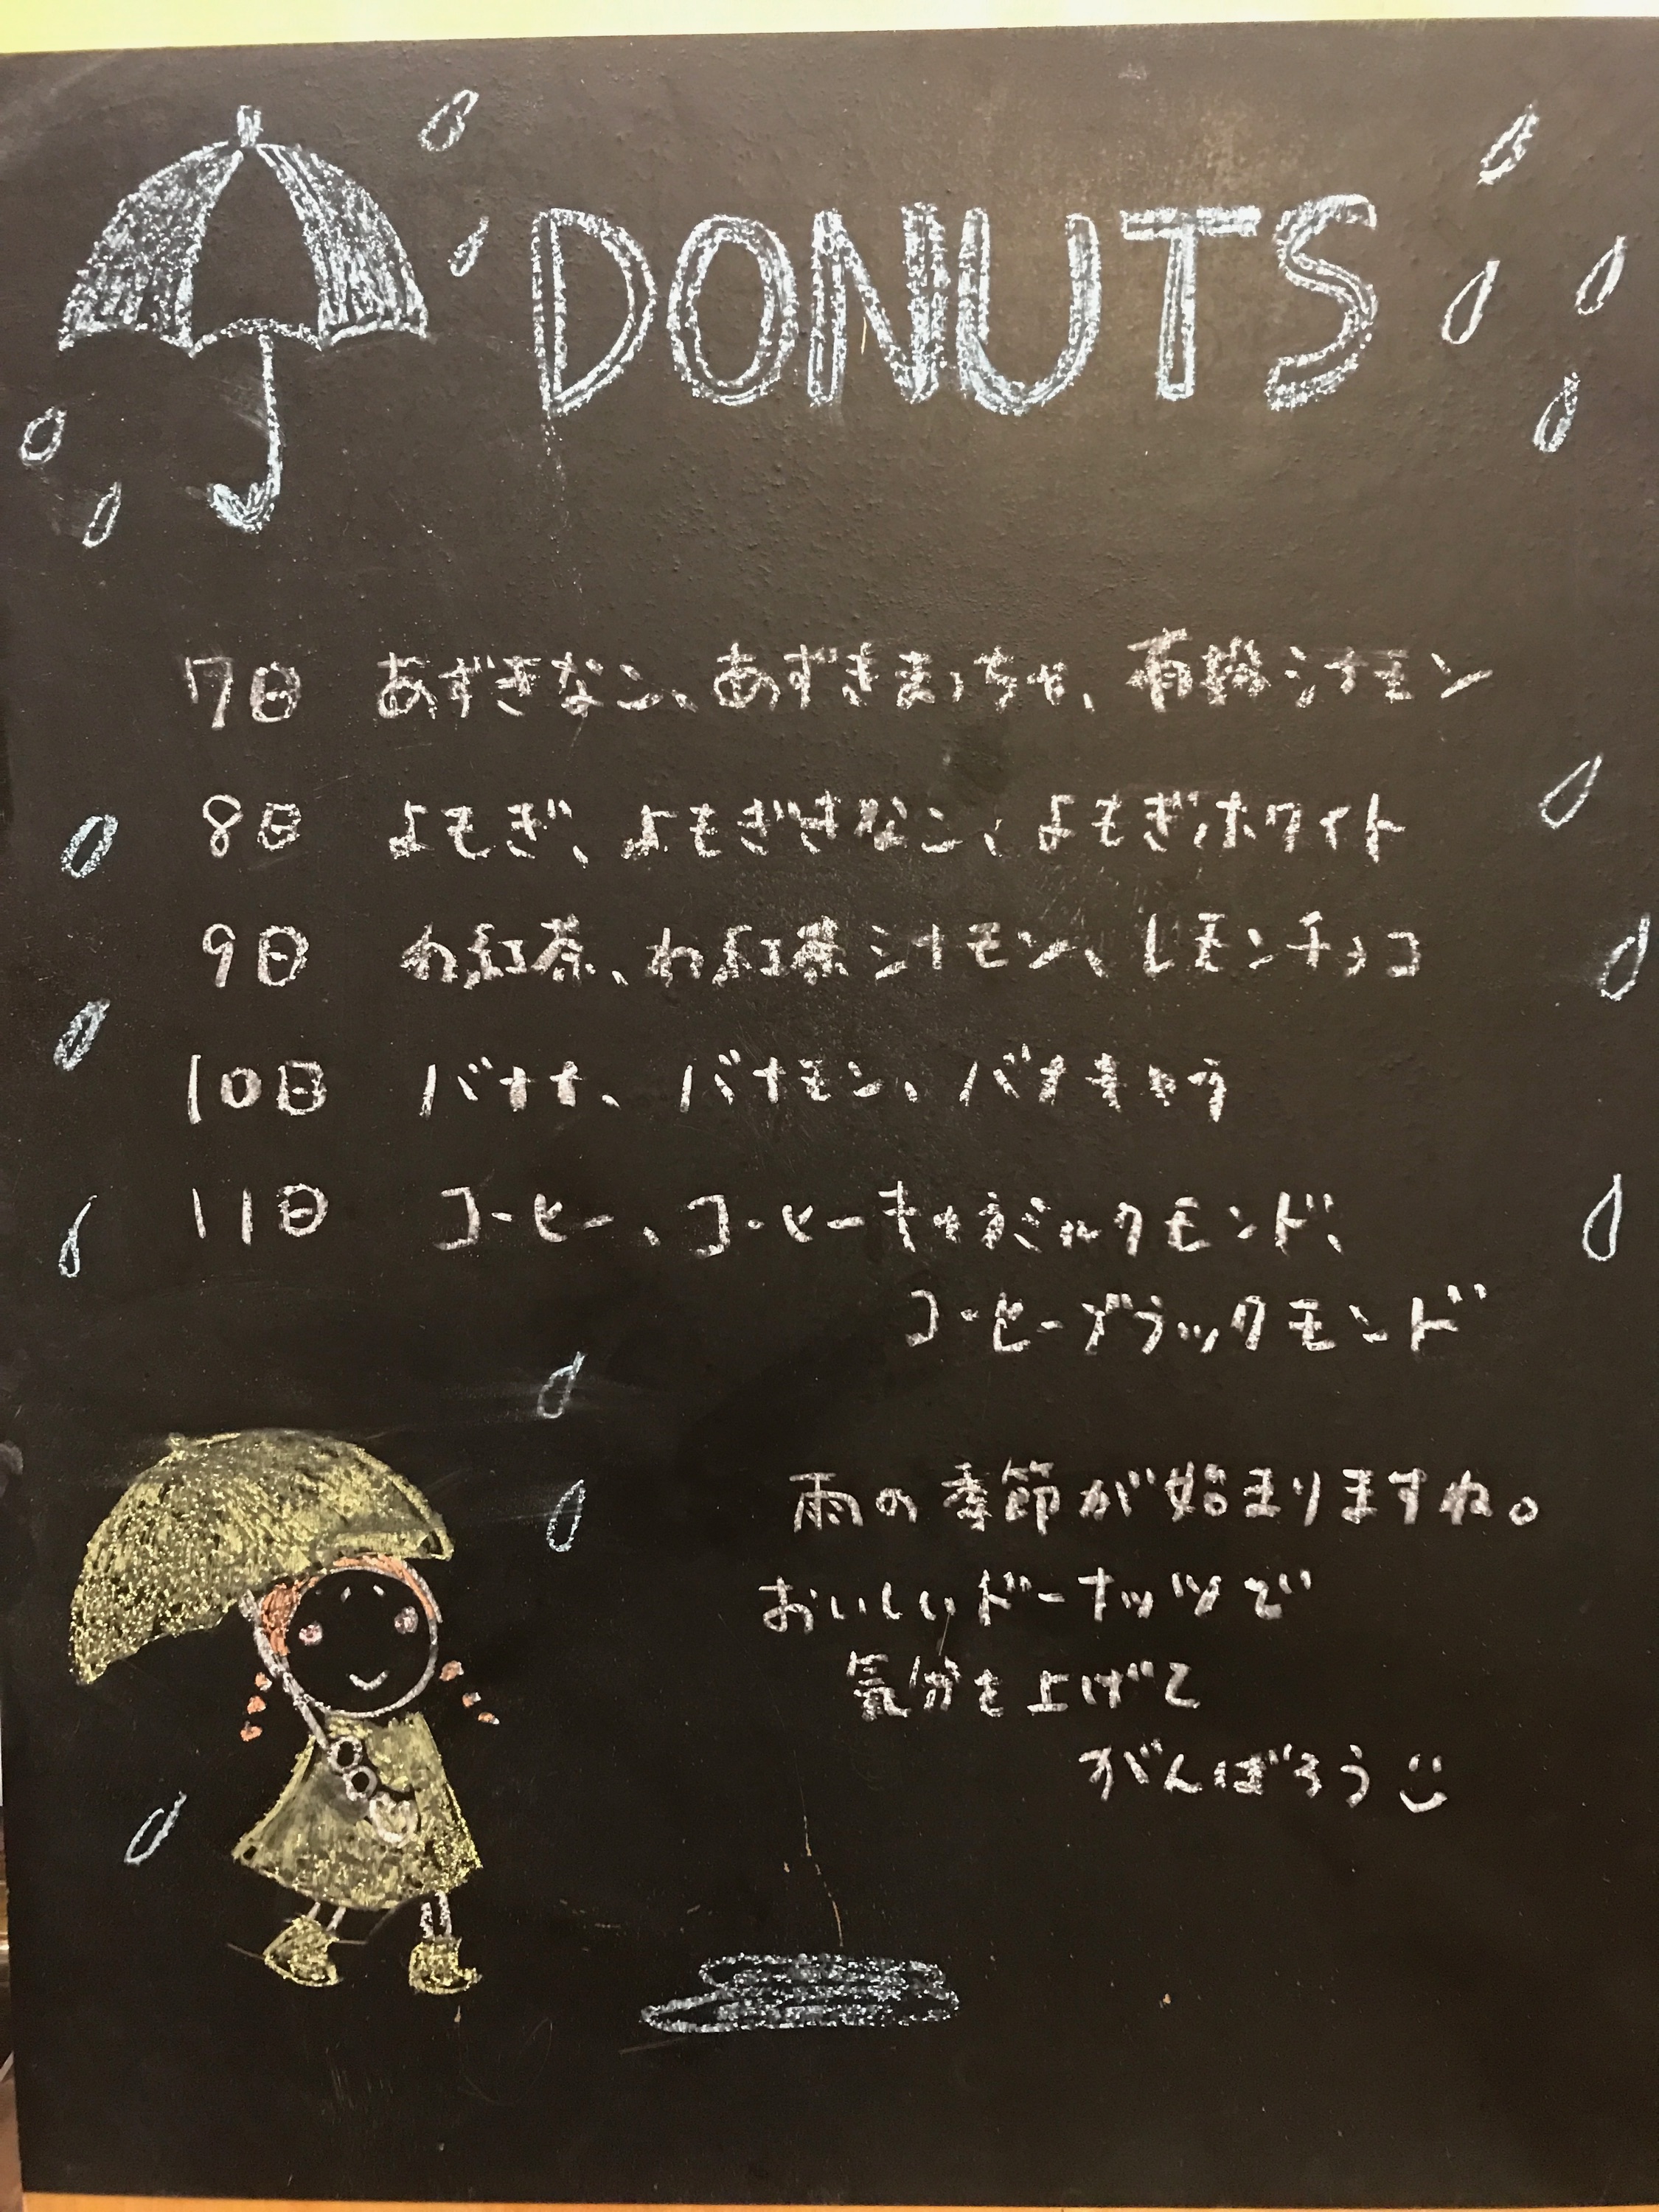 DONUTS
7日 あずきなこ、あずきまっちゃ、有機シナモン
8日 よもぎ、よもぎきなこ、よもぎホワイト
9日 わ紅茶、わ紅茶シナモン、レモンチョコ
10日 バナナ、バナモン、バナキャラ
11日 コーヒー、コーヒーキャラミルクモンド、
コーヒーブラックモンド
雨の季節が始まりますね。
おいしいドーナッツで
気分を上げて
がんばろう